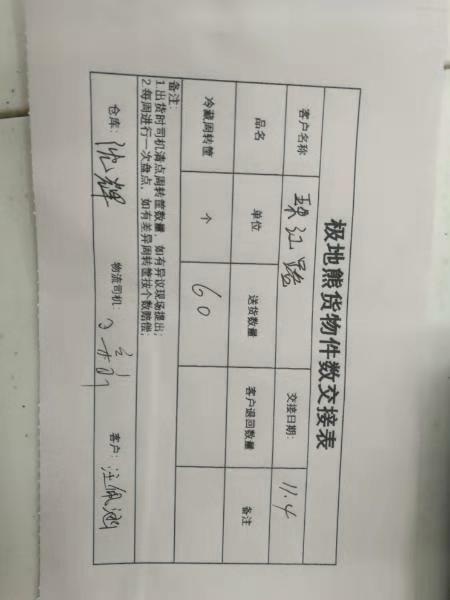 极地熊货物件数交接表
客户名称 珠江路 交接日期: 11.4
品名 单位 送货数量 客户退回数量 备注
冷藏周转筐 个 60
备注:
1.出货时司机清点周转筐数量,如有异议现场提出;
2.每周进行一次盘点,如有差异周转筐按个数赔偿;
仓库: 沈辉 物流司机: 客户: 汪佩